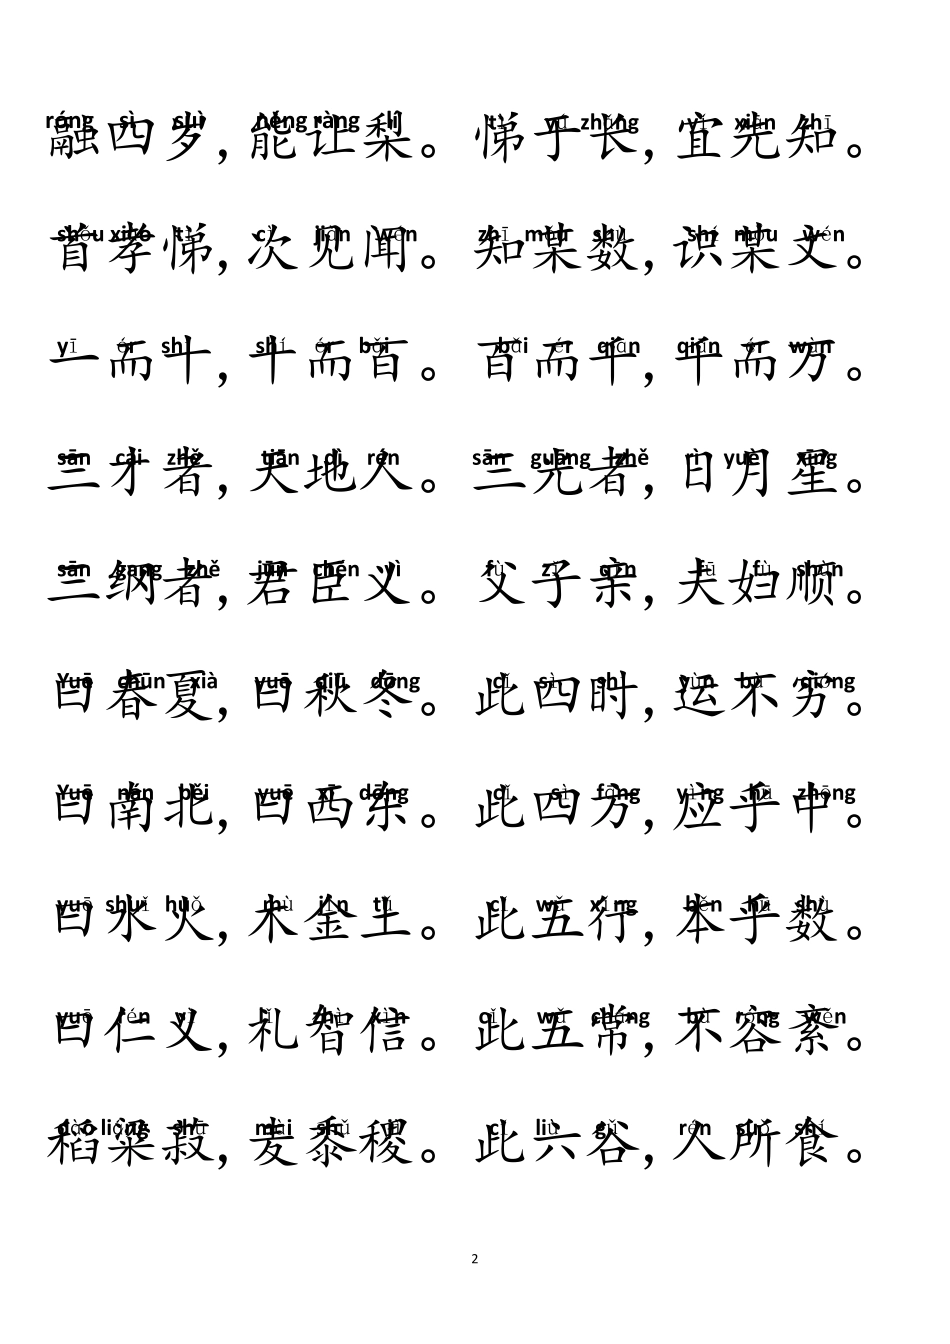 róng sì suì néng ràng lí tì yú zhǎng yí xiān zhī
融四岁，能让梨。悌于长，宜先知。
shǒu xiào tì cì jiàn wén zhī mǒu shù shí mǒu wén
首孝悌，次见闻。知某数，识某文。
yī ér shí shí ér bǎi bǎi ér qiān qiān ér wàn
一而十，十而百。百而千，千而万。
sān cái zhě tiān dì rén sān guāng zhě rì yuè xīng
三才者，天地人。三光者，日月星。
sān gang zhě jūn chén yì fù zǐ qīn fū fù shùn
三纲者，君臣义。父子亲，夫妇顺。
Yuē chūn xià yuē qiū dōng cǐ sì shí yùn bù qióng
曰春夏，曰秋冬。此四时，运不穷。
Yuē nán běi yuē xī dōng cǐ sì fāng yìng hū zhōng
曰南北，曰西东。此四方，应乎中。
yuē shuǐ huǒ mù jīn tǔ cǐ wǔ xíng běn hū shù
曰水火，木金土。此五行，本乎数。
yuē rén yì lǐ zhì xìn cǐ wǔ cháng bù róng wěn
曰仁义，礼智信。此五常，不容紊。
dào liáng shū mài shǔ jì cǐ liù gǔ rén suǒ shí
稻粱菽，麦黍稷。此六谷，人所食。
2